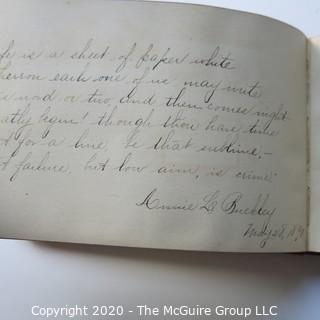 fe is a sheet of paper white
hereon each one of us may write
word or two, and then comes night
atly begin! though thou have time
t for a line, be that sublime,—
t failure, but low aim, is crime.
Annie L. Buckley
May 28, 189
Copyright 2020 - The McGuire Group LLC